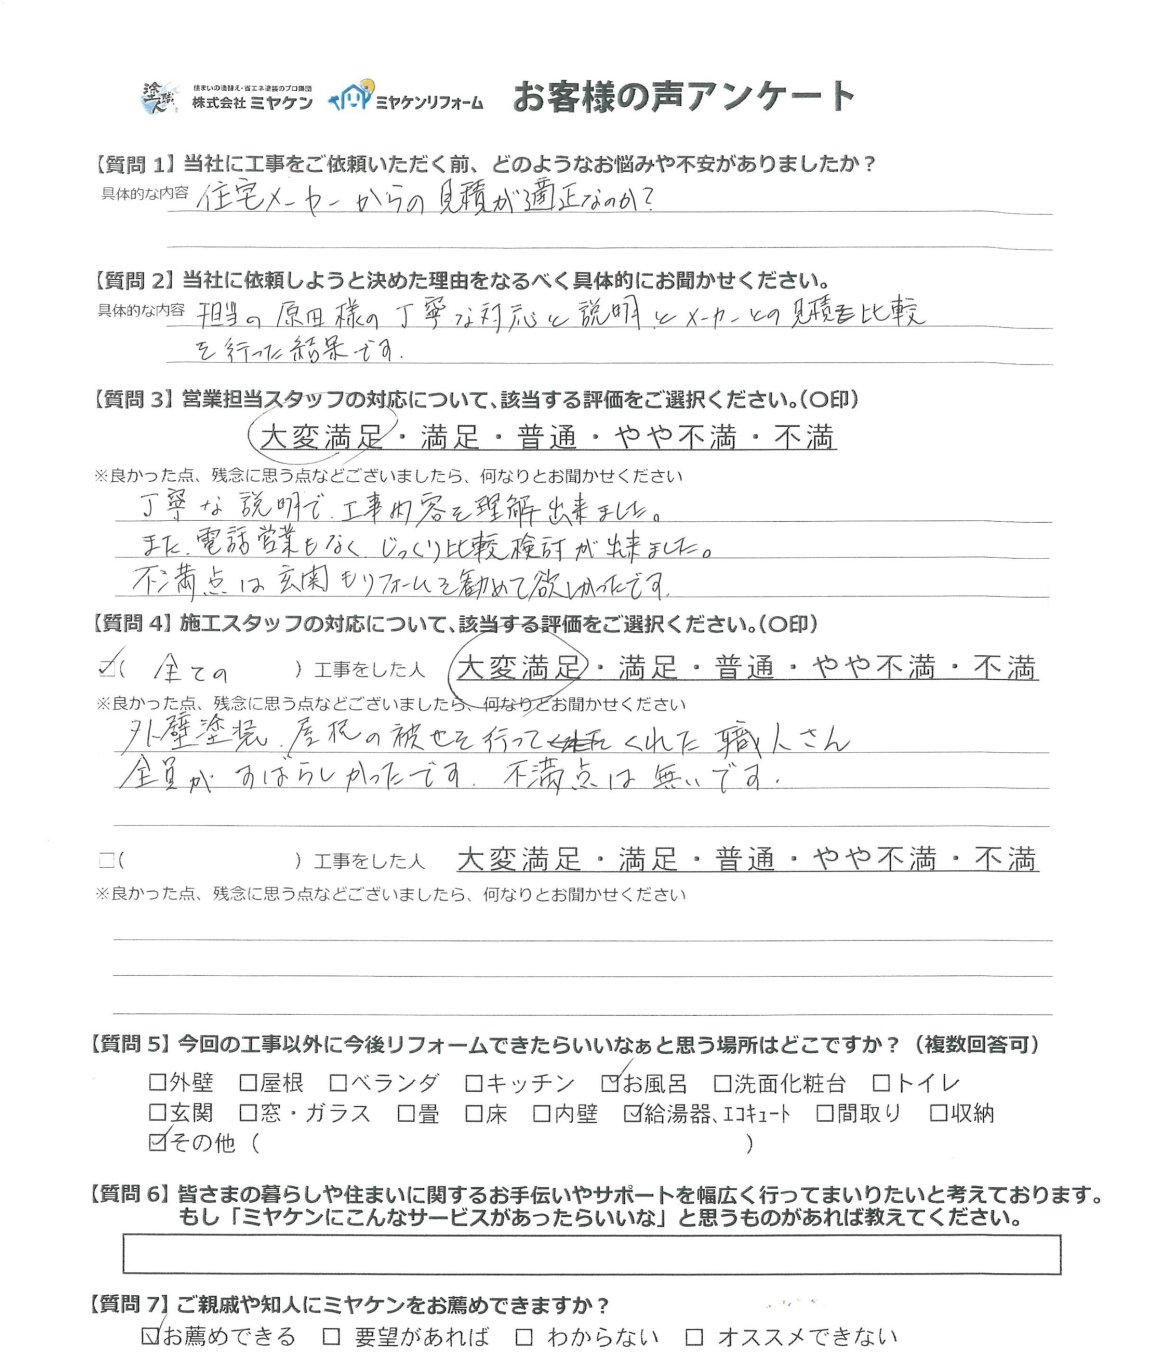 塗職人 住まいの塗替え・省エネ塗装のプロ集団 株式会社ミヤケン ミヤケンリフォーム お客様の声アンケート
【質問1】当社に工事をご依頼いただく前、どのようなお悩みや不安がありましたか？
具体的な内容 住宅メーカーからの見積が適正なのか?
【質問2】当社に依頼しようと決めた理由をなるべく具体的にお聞かせください。
具体的な内容 担当の原田様の丁寧な対応と説明とメーカーとの見積を比較
を行った結果です.
【質問3】営業担当スタッフの対応について、該当する評価をご選択ください。(○印)
大変満足・満足・普通・やや不満・不満
※良かった点、残念に思う点などございましたら、何なりとお聞かせください
丁寧な説明で、工事内容を理解出来ました。
また、電話営業もなく、じっくり比較検討が出来ました。
不満点は玄関もリフォームを勧めて欲しかったです.
【質問4】施工スタッフの対応について、該当する評価をご選択ください。(○印)
☑( 全ての ) 工事をした人 大変満足・満足・普通・やや不満・不満
※良かった点、残念に思う点などございましたら、何なりとお聞かせください
外壁塗装、屋根の被せを行ってくれた職人さん
全員がすばらしかったです. 不満点は無いです.
□( ) 工事をした人 大変満足・満足・普通・やや不満・不満
※良かった点、残念に思う点などございましたら、何なりとお聞かせください
【質問5】今回の工事以外に今後リフォームできたらいいなぁと思う場所はどこですか？（複数回答可）
□外壁 □屋根 □ベランダ □キッチン ☑お風呂 □洗面化粧台 □トイレ
□玄関 □窓・ガラス □畳 □床 □内壁 ☑給湯器、ｴｺｷｭｰﾄ □間取り □収納
☑その他（ ）
【質問6】皆さまの暮らしや住まいに関するお手伝いやサポートを幅広く行ってまいりたいと考えております。
もし「ミヤケンにこんなサービスがあったらいいな」と思うものがあれば教えてください。
【質問7】ご親戚や知人にミヤケンをお薦めできますか？
☑お薦めできる □ 要望があれば □ わからない □ オススメできない